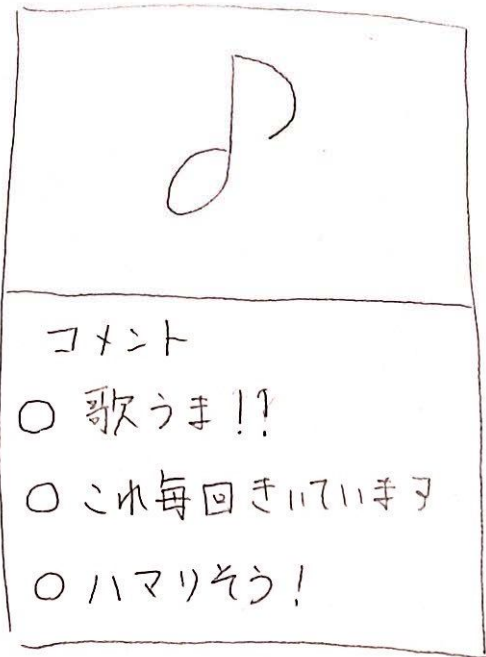 コメント
○ 歌うま!?
○ これ毎回きいています
○ ハマりそう!